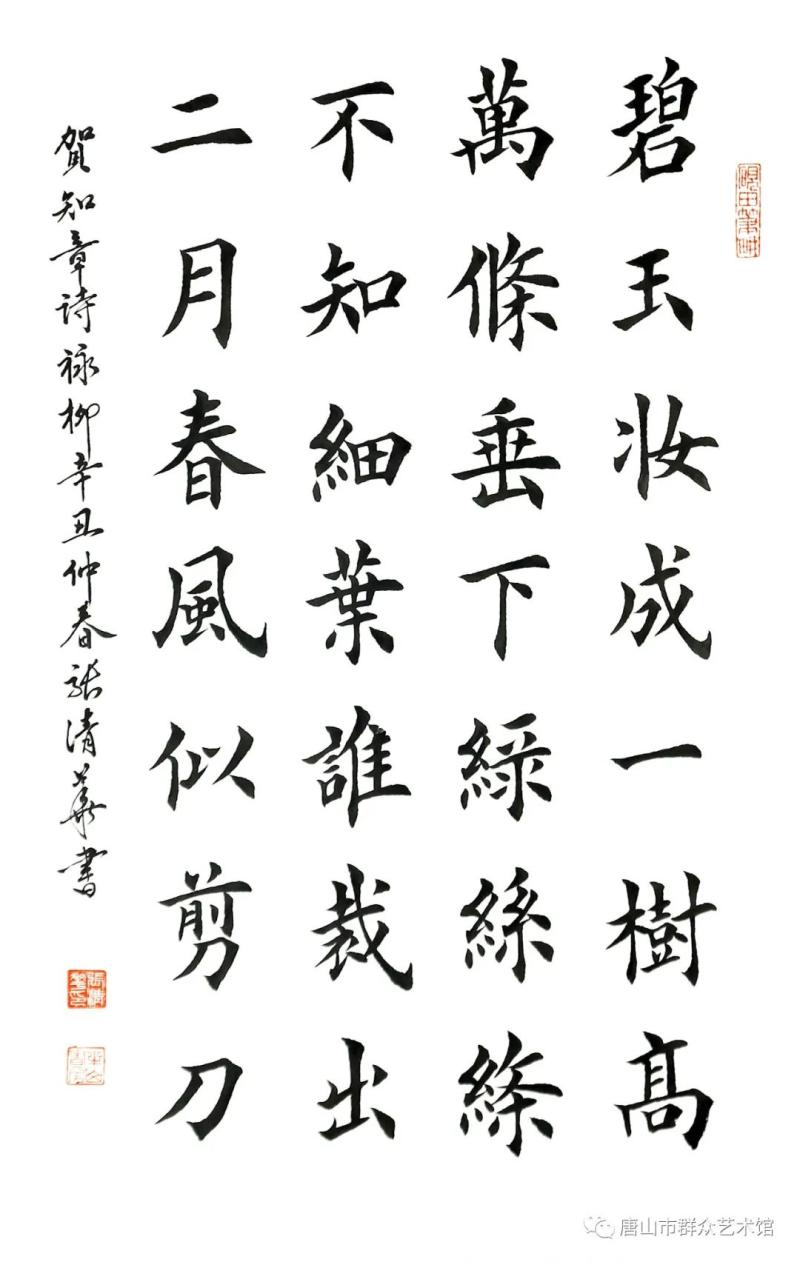 碧玉妝成一樹高
萬條垂下綠絲絛
不知細葉誰裁出
二月春風似剪刀
賀知章詩詠柳辛丑仲春張清華書
唐山市群众艺术馆